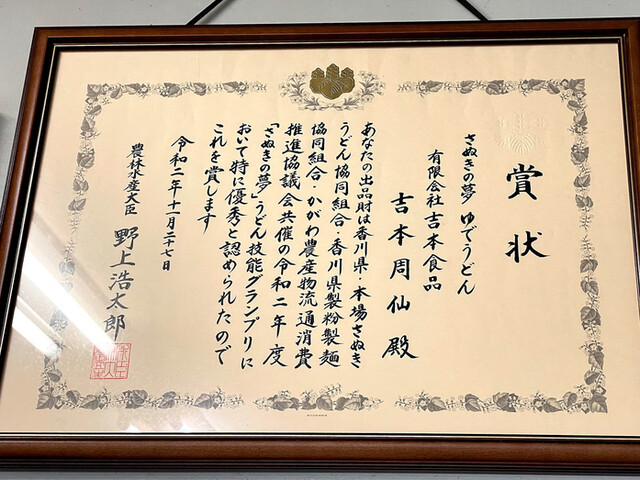 賞状
さぬきの夢 ゆでうどん
有限会社 吉本食品
吉本周仙殿
あなたの出品財は香川県・本場さぬき
うどん協同組合・香川県製粉製麺
協同組合・かがわ農産物流通消費
推進協議会共催の令和二年度
「さぬきの夢」うどん技能グランプリに
おいて特に優秀と認められたので
これを賞します
令和二年十一月二十七日
農林水産大臣 野上浩太郎